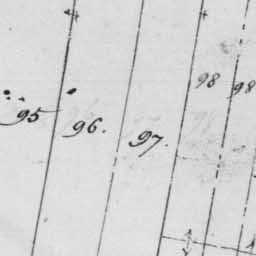 95 96. 97. 98 98